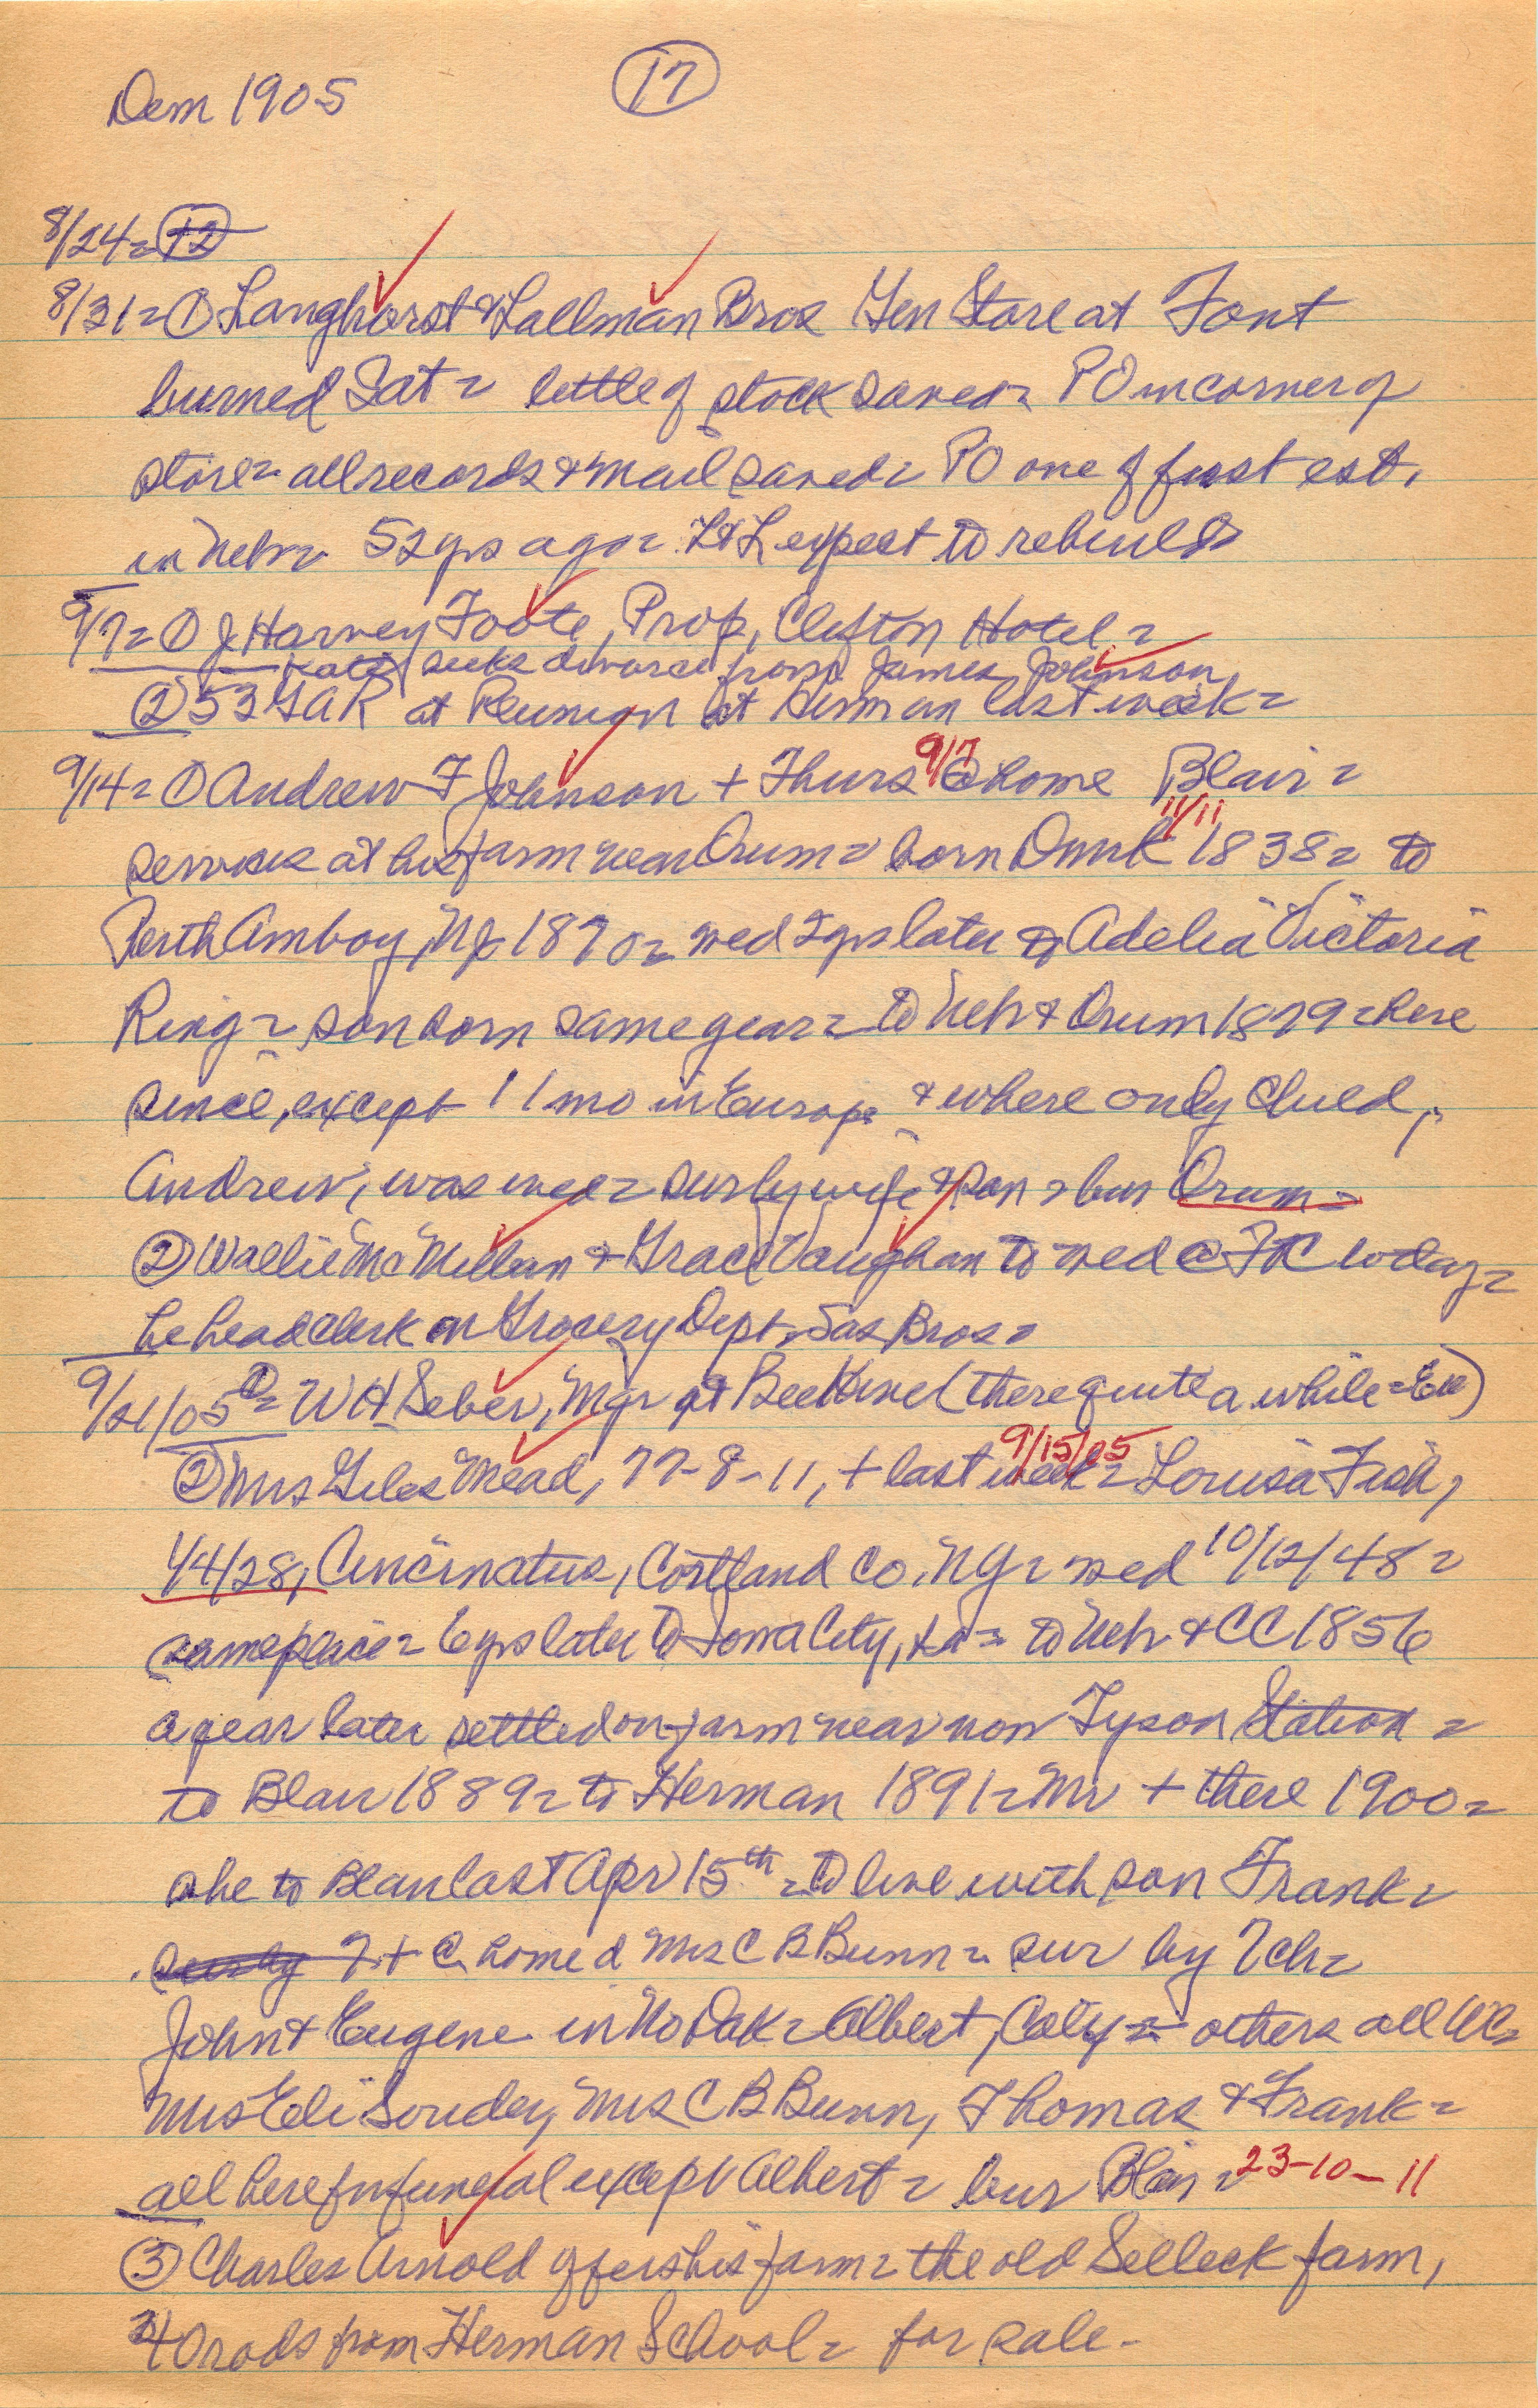 Dem 1905
17
8/24= 12
8/31= ① Langhorst & Lallman Bros Gen Store at Font
burned Sat = little of stock saved = PO in corner of
store = all records & mail saved = PO one of first est.
in Nebr = 52 yrs ago = L & L expect to rebuild
9/7= ① J Harvey Foote, Prop, Clifton Hotel =
seeks divorce from James Johnson
② 53 GAR at Reunion at Herman last week =
9/14= ① Andrew F Johnson + Thurs 9/7 @ home Blair =
services at his farm near Orum = born Dnmk 11/11 1838 = to
Perth Amboy, NJ 1870 = wed 2 yrs later to Adelia Victoria
Ring = son born same year = to Neb & Orum 1879 = here
since, except 11 mo in Europe & where only child,
Andrew, was wed = sur by wife & son = bur Orum =
② Wallie McMillan & Grace Vaughan to wed @ FC today =
he head clerk in Grocery Dept, Sas Bros =
9/21/05 ① = W H Seber, Mgr at Bee Hive (there quite a while = )
② Mrs Giles Mead, 77-8-11, + last week 9/15/05 = Louisa Fish,
1/4/28, Cincinatus, Cortland Co. NY = wed 10/12/48 =
same place = 6 yrs later to Iowa City, Ia = to Neb & CC 1856
a year later settled on farm near now Tyson Station =
to Blair 1889 = to Herman 1891 = Mr + there 1900 =
she to Blair last Apr 15th = to live with son Frank =
sur by 7 + @ home d Mrs C B Bunn = sur by 7 ch =
John & Eugene in No Dak = Albert, = others all WC =
Mrs Eli Souder, Mrs C B Bunn, Thomas & Frank =
all here for funeral except Albert = bur Blair = 23-10-11
③ Charles Arnold offers his farm = the old Selleck farm,
40 rods from Herman School = for sale -